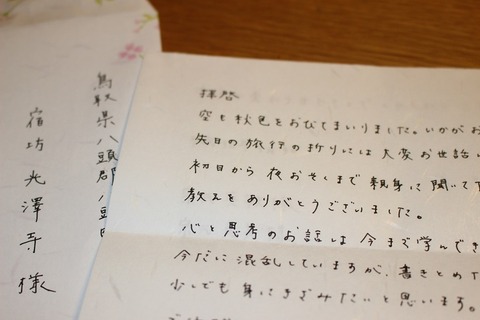 鳥取県八頭郡八頭町
宿坊 光澤寺 様
拝啓
空も秋色をおびてまいりました。いかがお
先日の旅行の折りには大変お世話
初日から夜おそくまで親身に聞いて
教えをありがとうございました。
心と思考のお話は今まで学んでき
今だに混乱していますが、書きとめ
少しでも身にきざみたいと思います。